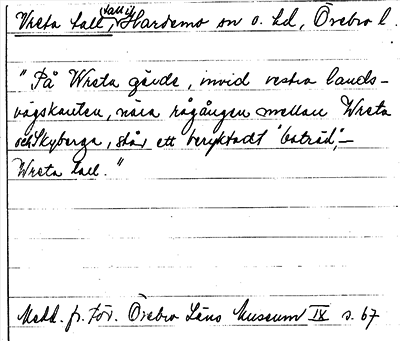 Wreta tall, tall i Hardemo sn o. hd, Örebro l.
"På Wreta gärde, invid vestra lands-
vägskanten, nära rågången mellan Wreta
och Skyberga, står ett beryktadt "boträd", –
Wreta tall."
Medd. fr. för. Örebro Läns Museum IX s. 67